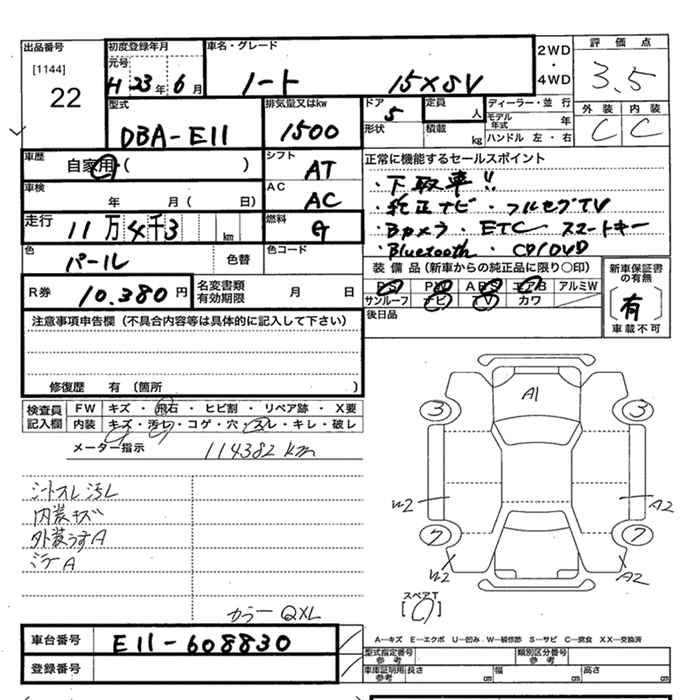 出品番号
[1144]
22
初度登録年月
元号
H 23 年 6 月
車名・グレード
ノート 15XSV
2WD
・
4WD
評価点
3.5
外装 内装
C C
型式
DBA-E11
排気量又はkw
1500
ドア
5
形状
定員
人
積載
kg
ディーラー・並行
モデル年式 年
ハンドル 左・右
車歴
自家用 ( )
シフト
AT
車検
年 月 ( 日)
AC
AC
走行
11万4千3
km
燃料
G
色
パール
色替
色コード
R券
10.380円
名変書類有効期限
月 日
正常に機能するセールスポイント
・下取車!!
・純正ナビ・フルセグTV
・Bカメラ・ETC スマートキー
・Bluetooth・CD/DVD
装備品(新車からの純正品に限り○印)
PS PW ABS エアB アルミW
サンルーフ ナビ TV カワ
後日品
新車保証書の有無
有
車載不可
注意事項申告欄(不具合内容等は具体的に記入して下さい)
修復歴 有(箇所 )
検査員記入欄
FW キズ・飛石・ヒビ割・リペア跡・X要
内装 キズ・汚レ・コゲ・穴・スレ・キレ・破レ
メーター指示 114382 km
シートスレ汚レ
内装キズ
外装うすA
ミラーA
カラー QXL
A1
3
3
W2
A2
7
7
W2
A2
スペアT
[ ]
車台番号
E11-608830
登録番号
A…キズ E…エクボ U…凹み W…補修跡 S…サビ C…腐食 XX…交換済
型式指定番号
参考
類別区分番号
参考
車庫証明用
参考
長さ cm
幅 cm
高さ cm